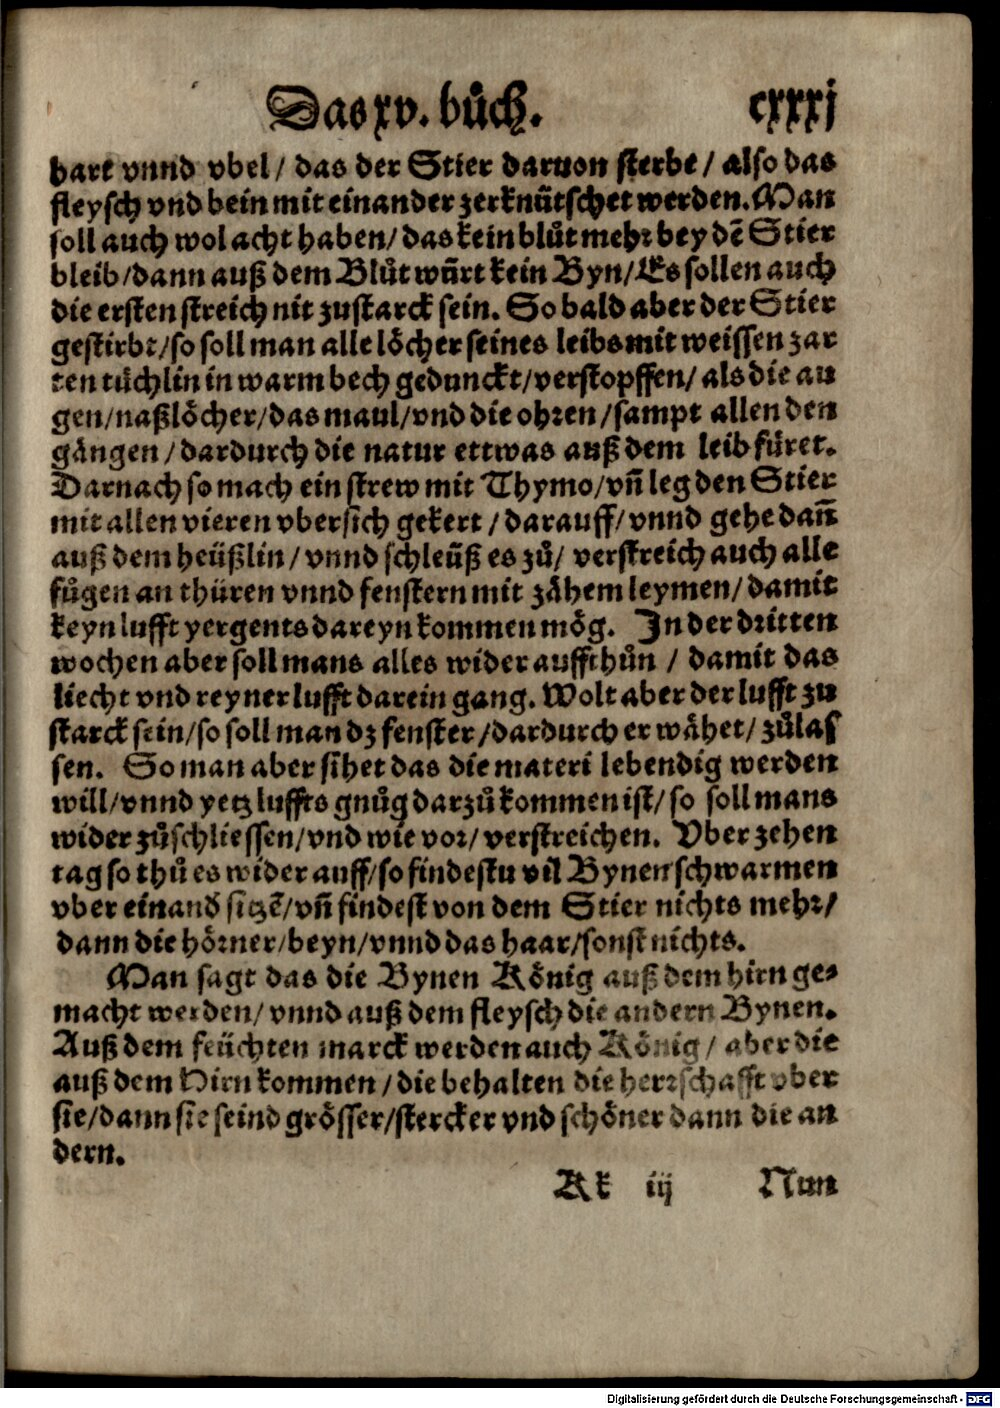 Das xv. bůch. cxxxj
hart vnnd vbel / das der Stier daruon sterbe / also das
fleysch vnd bein mit einander zerknütschet werden. Man
soll auch wol acht haben / das kein blůt mehr bey dē Stier
bleib / dann auß dem Blůt würt kein Byn / Es sollen auch
die ersten streich nit zustarck sein. So bald aber der Stier
gestirbt / so soll man alle löcher seines leibs mit weissen zar
ten tüchlin in warm bech gedunckt / verstopffen / als die au
gen / naßlöcher / das maul / vnd die ohren / sampt allen den
gängen / dardurch die natur ettwas auß dem leib füret.
Darnach so mach ein strew mit Thymo / vn̄ leg den Stier
mit allen vieren vbersich gekert / darauff / vnnd gehe dan̄
auß dem heüßlin / vnnd schleüß es zů / verstreich auch alle
fůgen an thüren vnnd fenstern mit zähem leymen / damit
keyn lufft yergents dareyn kommen mög. In der dritten
wochen aber soll mans alles wider auffthůn / damit das
liecht vnd reyner lufft darein gang. Wolt aber der lufft zu
starck sein / so soll man dz fenster / dardurch er wähet / zůlas
sen. So man aber sihet das die materi lebendig werden
will / vnnd yetz luffts gnůg darzů kommen ist / so soll mans
wider zůschliessen / vnd wie vor / verstreichen. Vber zehen
tag so thů es wider auff / so findestu vil Bynen schwarmen
vber einand̕ sitzē / vn̄ findest von dem Stier nichts mehr /
dann die hörner / beyn / vnnd das haar / sonst nichts.
Man sagt das die Bynen König auß dem hirn ge-
macht werden / vnnd auß dem fleysch die andern Bynen.
Auß dem feüchten marck werden auch König / aber die
auß dem Hirn kommen / die behalten die herrschafft vber
sie / dann sie seind grösser / stercker vnd schöner dann die an
dern.
Kk iij Nun
Digitalisierung gefördert durch die Deutsche Forschungsgemeinschaft - DFG